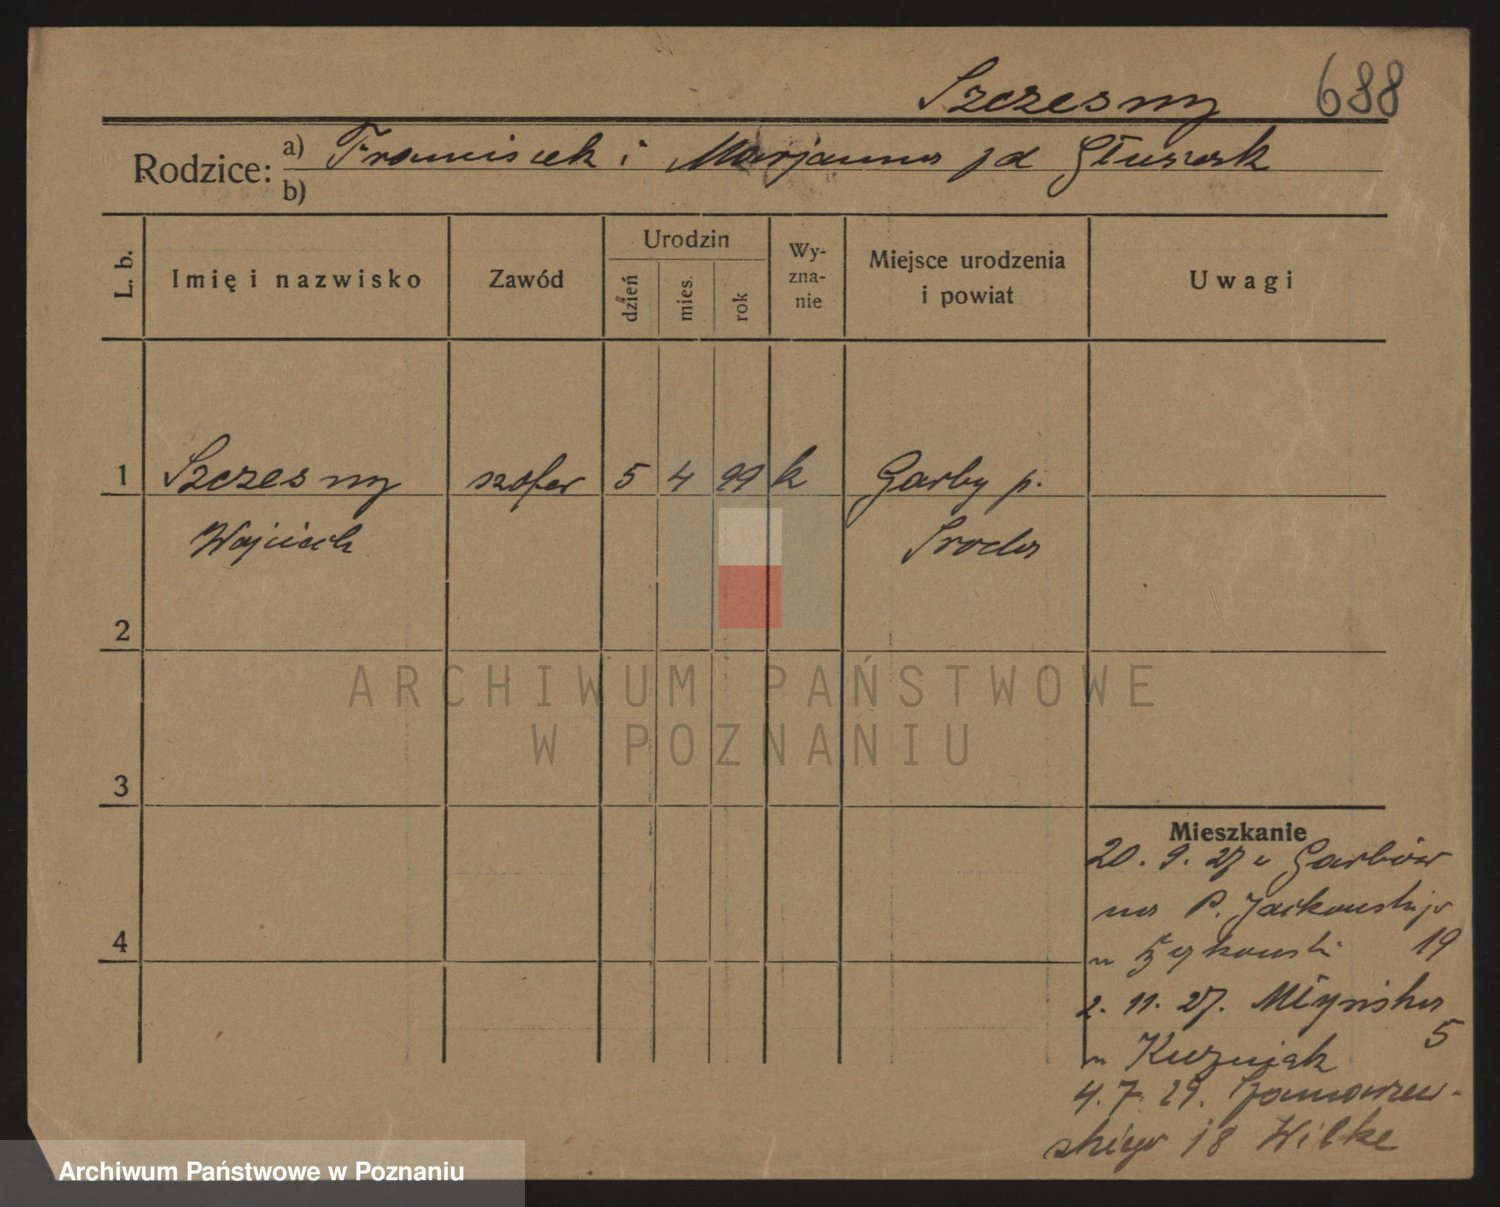 Szczesny 688
Rodzice: a) Franciszek i Marjanna zd Głuszak
b)
L. b. Imię i nazwisko Zawód Urodzin dzień mies. rok Wy-zna-nie Miejsce urodzenia i powiat Uwagi
1 Szczesny szofer 5 4 99 k Garby p.
Wojciech Sroda
2
ARCHIWUM PAŃSTWOWE
W POZNANIU
3
Mieszkanie
20. 9. 27 z Garbów
na P. Jackowskiego
4
u 19
2. 11. 27. Młyńska
u Kuzniak 5
4. 7. 29. Szamarzew-
skiego 18 Wilke
Archiwum Państwowe w Poznaniu